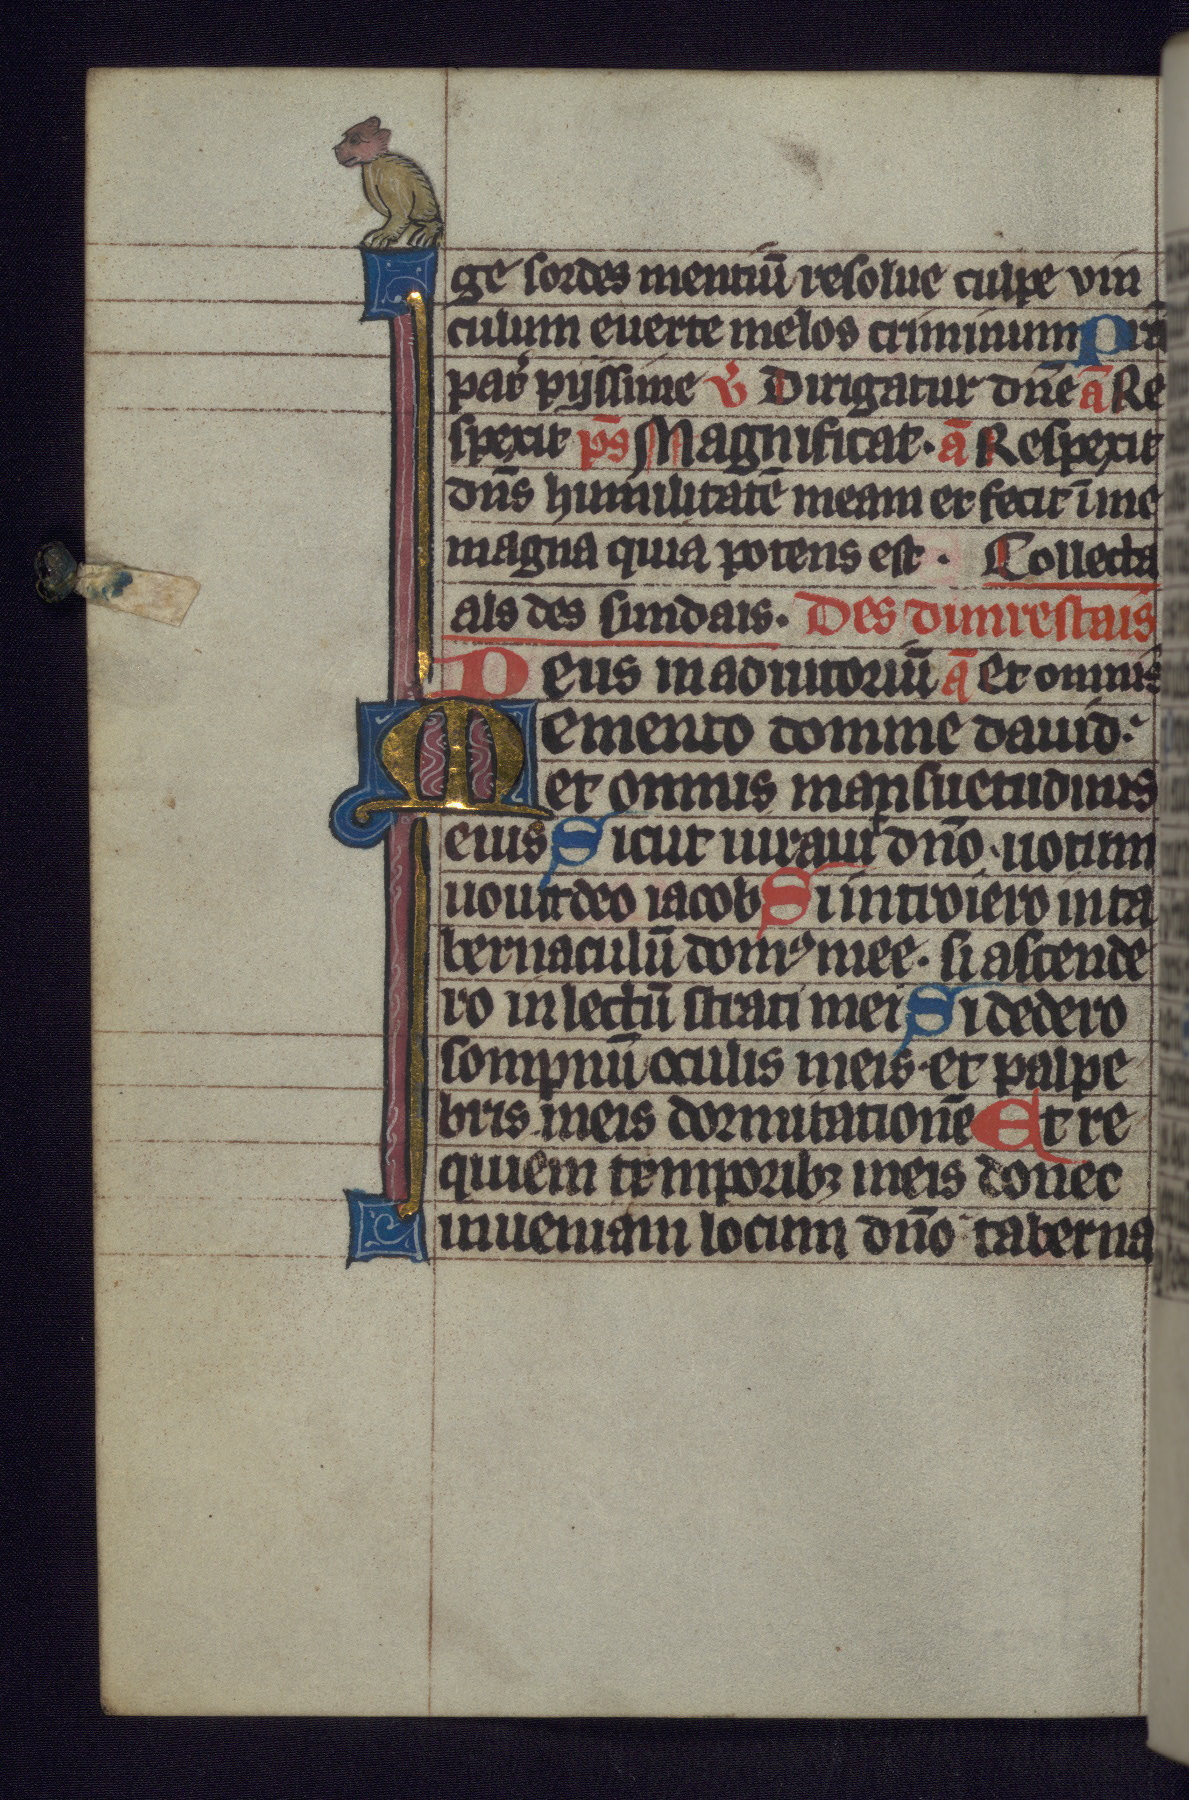 ge sordes mentiū resolue culpe vin
culum euerte meloſ criminum P̄rā
pat̾ pijssime v̾ Dirigatur dn̄e ā Re
spexit p̄s Magnificat. ā Respexit
dn̄s humilitatē meam et fecit ī me
magna quia potens est. Collecta
als des sundais. Des dunrestais
Deus in adiutoriū ā Et omnis
Memento domine dauid:
et omnis mansuetudinis
eius Sicut iurauit dn̄o. uotum
uouit deo iacob Si introiero in ta
bernaculū domꝰ mee. si ascende
ro in lectū strati mei Si dedero
sompnū oculis meis. et palpe
bris meis dormitationē Et re
quiem temporibꝫ meis donec
inueniam locum dn̄o taberna